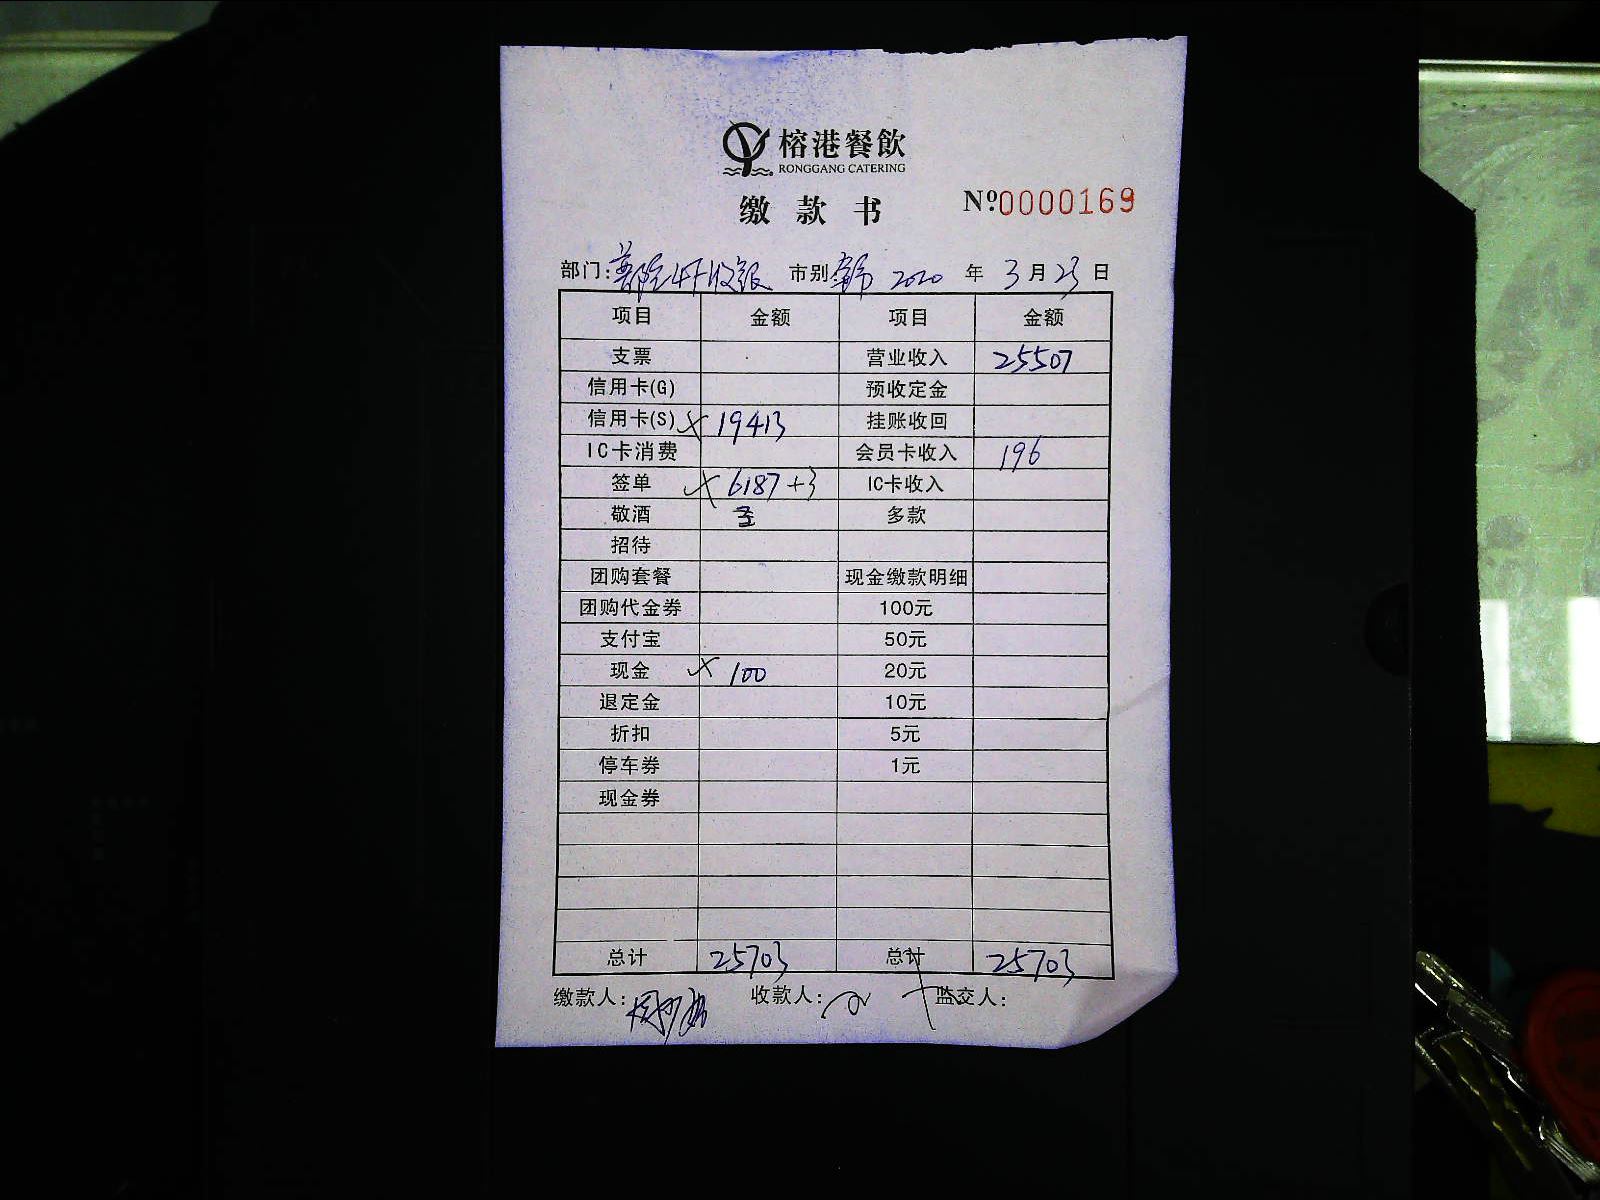 榕港餐飲
RONGGANG CATERING
缴款书 Nº0000169
部门: 4F收银 市别: 2020 年 3 月 23 日
项目 金额 项目 金额
支票 营业收入 25507
信用卡(G) 预收定金
信用卡(S) × 19413 挂账收回
IC卡消费 会员卡收入 196
签单 × 6187+3 IC卡收入
敬酒 多款
招待
团购套餐 现金缴款明细
团购代金券 100元
支付宝 50元
现金 × 100 20元
退定金 10元
折扣 5元
停车券 1元
现金券
总计 25703 总计 25703
缴款人: 收款人: 监交人: